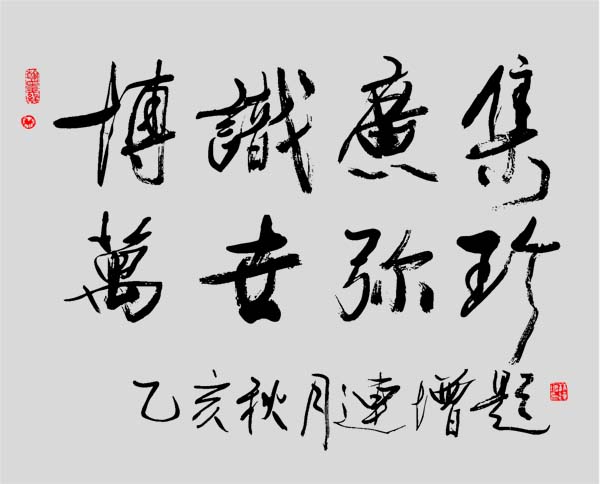 博識廣集
萬世弥珍
乙亥秋月連增題